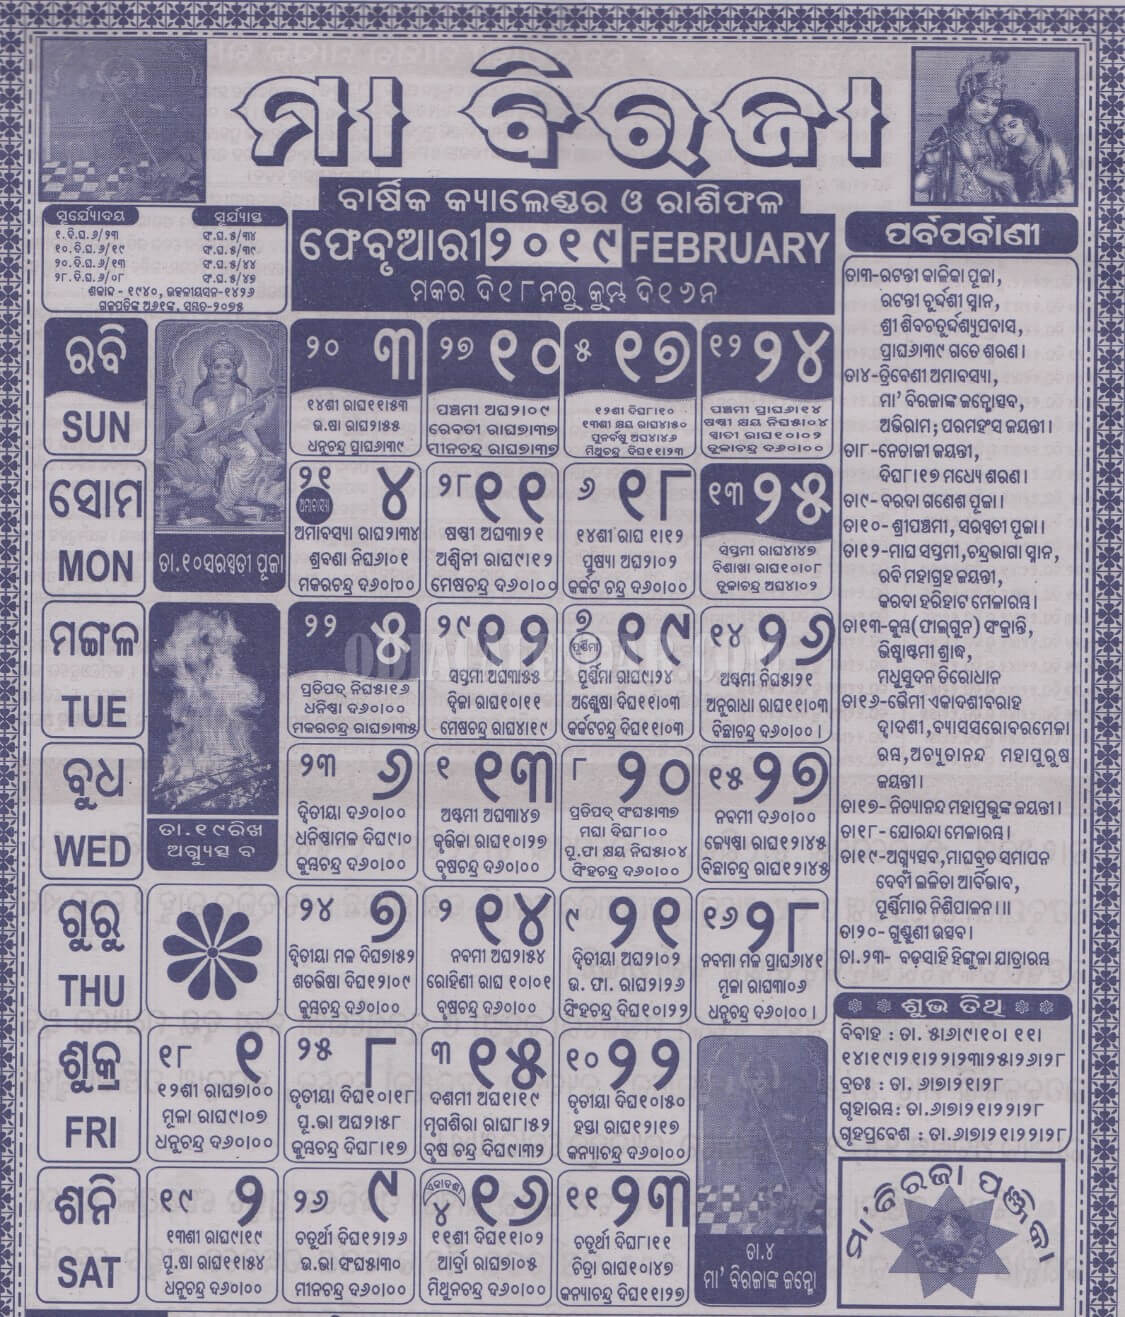 ମା ବିରଜା
ବାର୍ଷିକ କ୍ୟାଲେଣ୍ଡର ଓ ରାଶିଫଳ
ଫେବୃଆରୀ ୨୦୧୯ FEBRUARY
ମକର ଦି୧୮ନରୁ କୁମ୍ଭ ଦି୧୬ନ
ସୂର୍ଯ୍ୟୋଦୟ ସୂର୍ଯ୍ୟାସ୍ତ
୧.ଦି.ଘ.୬/୨୩ ସଂ.ଘ.୫/୩୪
୧୦.ଦି.ଘ.୬/୧୯ ସଂ.ଘ.୫/୩୯
୨୦.ଦି.ଘ.୬/୧୩ ସଂ.ଘ.୫/୪୪
୨୮.ଦି.ଘ.୬/୦୮ ସଂ.ଘ.୫/୪୭
ଶକାବ୍ଦ - ୧୯୪୦, ଉତ୍କଳୀୟସନ-୧୪୨୬
ଗଜପତିଙ୍କ ଅ୬୧ଙ୍କ, ସମ୍ବତ-୨୦୭୫
ରବି
SUN
୨୦ ୩
୧୪ଶୀ ରାଘ୧୧।୫୩
ଉ.ଷା ରାଘ୨।୫୫
ଧନୁଚନ୍ଦ୍ର ପ୍ରାଘ୬।୩୯
୨୭ ୧୦
ପଞ୍ଚମୀ ଅଘ୨।୦୯
ରେବତୀ ରାଘ୭।୩୭
ମୀନଚନ୍ଦ୍ର ରାଘ୭।୩୭
୫ ୧୭
୧୨ଶୀ ଦିଘ୮।୧୦
୧୩ଶୀ କ୍ଷୟ ରାଘ୪।୫୦
ପୁନର୍ବସୁ ଅଘ୪।୪୬
ମିଥୁଚନ୍ଦ୍ର ଦିଘ୧୧।୨୩
୧୨ ୨୪
ପଞ୍ଚମୀ ପ୍ରାଘ୬।୧୪
ଷଷ୍ଠୀ କ୍ଷୟ ନିଘ୫।୦୪
ସ୍ୱାତୀ ରାଘ୧୦।୦୨
ତୁଳାଚନ୍ଦ୍ର ଦ୬୦।୦୦
ସୋମ
MON
ତା.୧୦ସରସ୍ୱତୀ ପୂଜା
୨୧ ୪
ଅମାବାସ୍ୟା
ଅମାବାସ୍ୟା ରାଘ୨।୩୪
ଶ୍ରବଣା ନିଘ୬।୦୧
ମକରଚନ୍ଦ୍ର ଦ୬୦।୦୦
୨୮ ୧୧
ଷଷ୍ଠୀ ଅଘ୩।୨୧
ଅଶ୍ୱିନୀ ରାଘ୯।୧୨
ମେଷଚନ୍ଦ୍ର ଦ୬୦।୦୦
୬ ୧୮
୧୪ଶୀ ରାଘ ୧।୧୨
ପୁଷ୍ୟା ଅଘ୨।୦୨
କର୍କଟ ଚନ୍ଦ୍ର ଦ୬୦।୦୦
୧୩ ୨୫
ସପ୍ତମୀ ରାଘ୪।୪୭
ବିଶାଖା ରାଘ୧୦।୦୮
ତୁଳାଚନ୍ଦ୍ର ଅଘ୪।୦୨
ମଙ୍ଗଳ
TUE
୨୨ ୫
ପ୍ରତିପଦ୍ ନିଘ୫।୧୬
ଧନିଷ୍ଠା ଦ୬୦।୦୦
ମକରଚନ୍ଦ୍ର ରାଘ୭।୩୫
୨୯ ୧୨
ସପ୍ତମୀ ଅଘ୩।୫୪
ଦ୍ୱିଜା ରାଘ୧୦।୧୧
ମେଷଚନ୍ଦ୍ର ରାଘ୪।୧୯
୭ ୧୯
ପୂର୍ଣ୍ଣିମା
ପୂର୍ଣ୍ଣିମା ରାଘ୯।୨୪
ଅଶ୍ଳେଷା ଦିଘ୧୧।୦୩
କର୍କଟଚନ୍ଦ୍ର ଦିଘ୧୧।୦୩
୧୪ ୨୬
ଅଷ୍ଟମୀ ନିଘ୫।୨୧
ଅନୁରାଧା ରାଘ୧୧।୦୩
ବିଛାଚନ୍ଦ୍ର ଦ୬୦।୦୦।
ତା.୧୯ରିଖ
ଅଗ୍ନ୍ୟୁତ୍ସ ବ
ବୁଧ
WED
୨୩ ୬
ଦ୍ୱିତୀୟା ଦ୬୦।୦୦
ଧନିଷ୍ଠାମଳ ଦିଘ୯।୦
କୁମ୍ଭଚନ୍ଦ୍ର ଦ୬୦।୦୦
୧ ୧୩
ଅଷ୍ଟମୀ ଅଘ୩।୪୭
କୃତ୍ତିକା ରାଘ୧୦।୨୭
ବୃଷଚନ୍ଦ୍ର ଦ୬୦।୦୦
୮ ୨୦
ପ୍ରତିପଦ୍ ସଂଘ୫।୩୭
ମଘା ଦିଘ୮।୦୦
ପୂ.ଫା କ୍ଷୟ ନିଘ୫।୦୪
ସିଂହଚନ୍ଦ୍ର ଦ୬୦।୦୦
୧୫ ୨୭
ନବମୀ ଦ୬୦।୦୦
ଜ୍ୟେଷ୍ଠା ରାଘ୧୨।୪୫
ବିଛାଚନ୍ଦ୍ର ରାଘ୧୨।୪୫
ଗୁରୁ
THU
୨୪ ୭
ଦ୍ୱିତୀୟା ମଳ ଦିଘ୭।୫୨
ଶତଭିଷା ଦିଘ୧୨।୦୯
କୁମ୍ଭଚନ୍ଦ୍ର ଦ୬୦।୦୦
୨ ୧୪
ନବମୀ ଅଘ୨।୫୪
ରୋହିଣୀ ରାଘ ୧୦।୦୧
ବୃଷଚନ୍ଦ୍ର ଦ୬୦।୦୦
୯ ୨୧
ଦ୍ୱିତୀୟା ଅଘ୨।୦୨
ଉ. ଫା. ରାଘ୨।୨୬
ସିଂହଚନ୍ଦ୍ର ଦିଘ୧୦।୨୨
୧୬ ୨୮
ନବମୀ ମଳ ପ୍ରାଘ୬।୪୧
ମୂଳା ରାଘ୩।୦୬
ଧନୁଚନ୍ଦ୍ର ଦ୬୦।୦୦।
ଶୁକ୍ର
FRI
୧୮ ୧
୧୨ଶୀ ରାଘ୭।୦୦
ମୂଳା ରାଘ୯।୦୭
ଧନୁଚନ୍ଦ୍ର ଦ୬୦।୦୦
୨୫ ୮
ତୃତୀୟା ଦିଘ୧୦।୧୮
ପୂ.ଭା ଅଘ୨।୫୮
କୁମ୍ଭଚନ୍ଦ୍ର ଦିଘ୮।୧୭
୩ ୧୫
ଦଶମୀ ଅଘ୧।୧୯
ମୃଗଶିରା ରାଘ୮।୫୨
ବୃଷ ଚନ୍ଦ୍ର ଦିଘ୯।୩୨
୧୦ ୨୨
ତୃତୀୟା ଦିଘ୧୦।୫୦
ହସ୍ତା ରାଘ୧୨।୧୭
କନ୍ୟାଚନ୍ଦ୍ର ଦ୬୦।୦୦
ଶନି
SAT
୧୯ ୨
୧୩ଶୀ ରାଘ୯।୧୯
ପୂ.ଷା ରାଘ୧୧।୫୪
ଧନୁଚନ୍ଦ୍ର ଦ୬୦।୦୦
୨୬ ୯
ଚତୁର୍ଥୀ ଦିଘ୧୨।୨୬
ଉ.ଭା ସଂଘ୫।୩୦
ମୀନଚନ୍ଦ୍ର ଦ୬୦।୦୦
ଏକାଦଶୀ
୪ ୧୬
୧୧ଶୀ ଦିଘ୧୧।୦୨
ଆର୍ଦ୍ରା ରାଘ୭।୦୫
ମିଥୁନଚନ୍ଦ୍ର ଦ୬୦।୦୦
୧୧ ୨୩
ଚତୁର୍ଥୀ ଦିଘ୮।୧୧
ଚିତ୍ରା ରାଘ୧୦।୪୭
କନ୍ୟାଚନ୍ଦ୍ର ଦିଘ୧୧।୨୭
ତା.୪
ମା' ବିରଜାଙ୍କ ଜନ୍ମୋ
ପର୍ବପର୍ବାଣୀ
ତା୩-ରଟନ୍ତୀ କାଳିକା ପୂଜା,
ରଟନ୍ତୀ ଚୁର୍ଦଶୀ ସ୍ନାନ,
ଶ୍ରୀ ଶିବଚତୁର୍ଦ୍ଦଶ୍ୟୁପବାସ,
ପ୍ରାଘ୬।୩୯ ଗତେ ଶ୍ରବଣ।
ତା୪-ତ୍ରିବେଣୀ ଅମାବାସ୍ୟା,
ମା' ବିରଜାଙ୍କ ଜନ୍ମୋତ୍ସବ,
ଅଭିରାମ; ପରମହଂସ ଜୟନ୍ତୀ।
ତା୮-ନେତାଜୀ ଜୟନ୍ତୀ,
ଦିଘ୮।୧୭ ମଧ୍ୟେ ଶରଣ।
ତା୯- ବରଦା ଗଣେଶ ପୂଜା।
ତା୧୦- ଶ୍ରୀପଞ୍ଚମୀ, ସରସ୍ୱତୀ ପୂଜା।
ତା୧୨-ମାଘ ସପ୍ତମୀ, ଚନ୍ଦ୍ରଭାଗା ସ୍ନାନ,
ରବି ମହାଗ୍ରହ ଜୟନ୍ତୀ,
କରଦା ହରିହାଟ ମେଳାରମ୍ଭ।
ତା୧୩-କୁମ୍ଭ(ଫାଲ୍‌ଗୁନ) ସଂକ୍ରାନ୍ତି,
ଭିଷ୍ମାଷ୍ଟମୀ ଶ୍ରାଦ୍ଧ,
ମଧୁସୂଦନ ତିରୋଧାନ
ତା୧୬-ଭୈମୀ ଏକାଦଶୀବରାହ
ଦ୍ୱାଦଶୀ, ଚ୍ୟାରସରୋବରମେଳା
ରମ୍ଭ,ଅଚ୍ୟୁତାନନ୍ଦ ମହାପୁରୁଷ
ଜୟନ୍ତୀ।
ତା୧୭- ନିତ୍ୟାନନ୍ଦ ମହାପ୍ରଭୁଙ୍କ ଜୟନ୍ତୀ।
ତା୧୮- ଯୋରନ୍ଦା ମେଳାରମ୍ଭ।
ତା୧୯-ଅଗ୍ନ୍ୟୁତ୍ସବ, ମାଘବ୍ରତ ସମାପନ
ଦେବୀ ଲଳିତା ଆର୍ବିଭାବ,
ପୂର୍ଣ୍ଣିମାର ନିଶିପାଳନ।।
ତା୨୦- ଗୁଣ୍ଡୁଣୀ ଉତ୍ସବ।
ତା.୨୩- ବଡ଼ସାହି ହିଙ୍ଗୁଳା ଯାତ୍ରାରମ୍ଭ
ଶୁଭ ତିଥି
ବିବାହ : ତା. ୫।୬।୯।୧୦। ୧୧।
୧୪।୧୯।୨୧।୨୨।୨୩।୨୫।୨୬।୨୮
ବ୍ରତଃ : ତା. ୬।୭।୨୧।୨୮
ଗୃହାରମ୍ଭ: ତା.୬।୭।୨୧।୨୨।୨୮
ଗୃହପ୍ରବେଶ : ତା.୬।୭।୨୧।୨୨।୨୮
ମା' ବିରଜା ପଞ୍ଜିକା